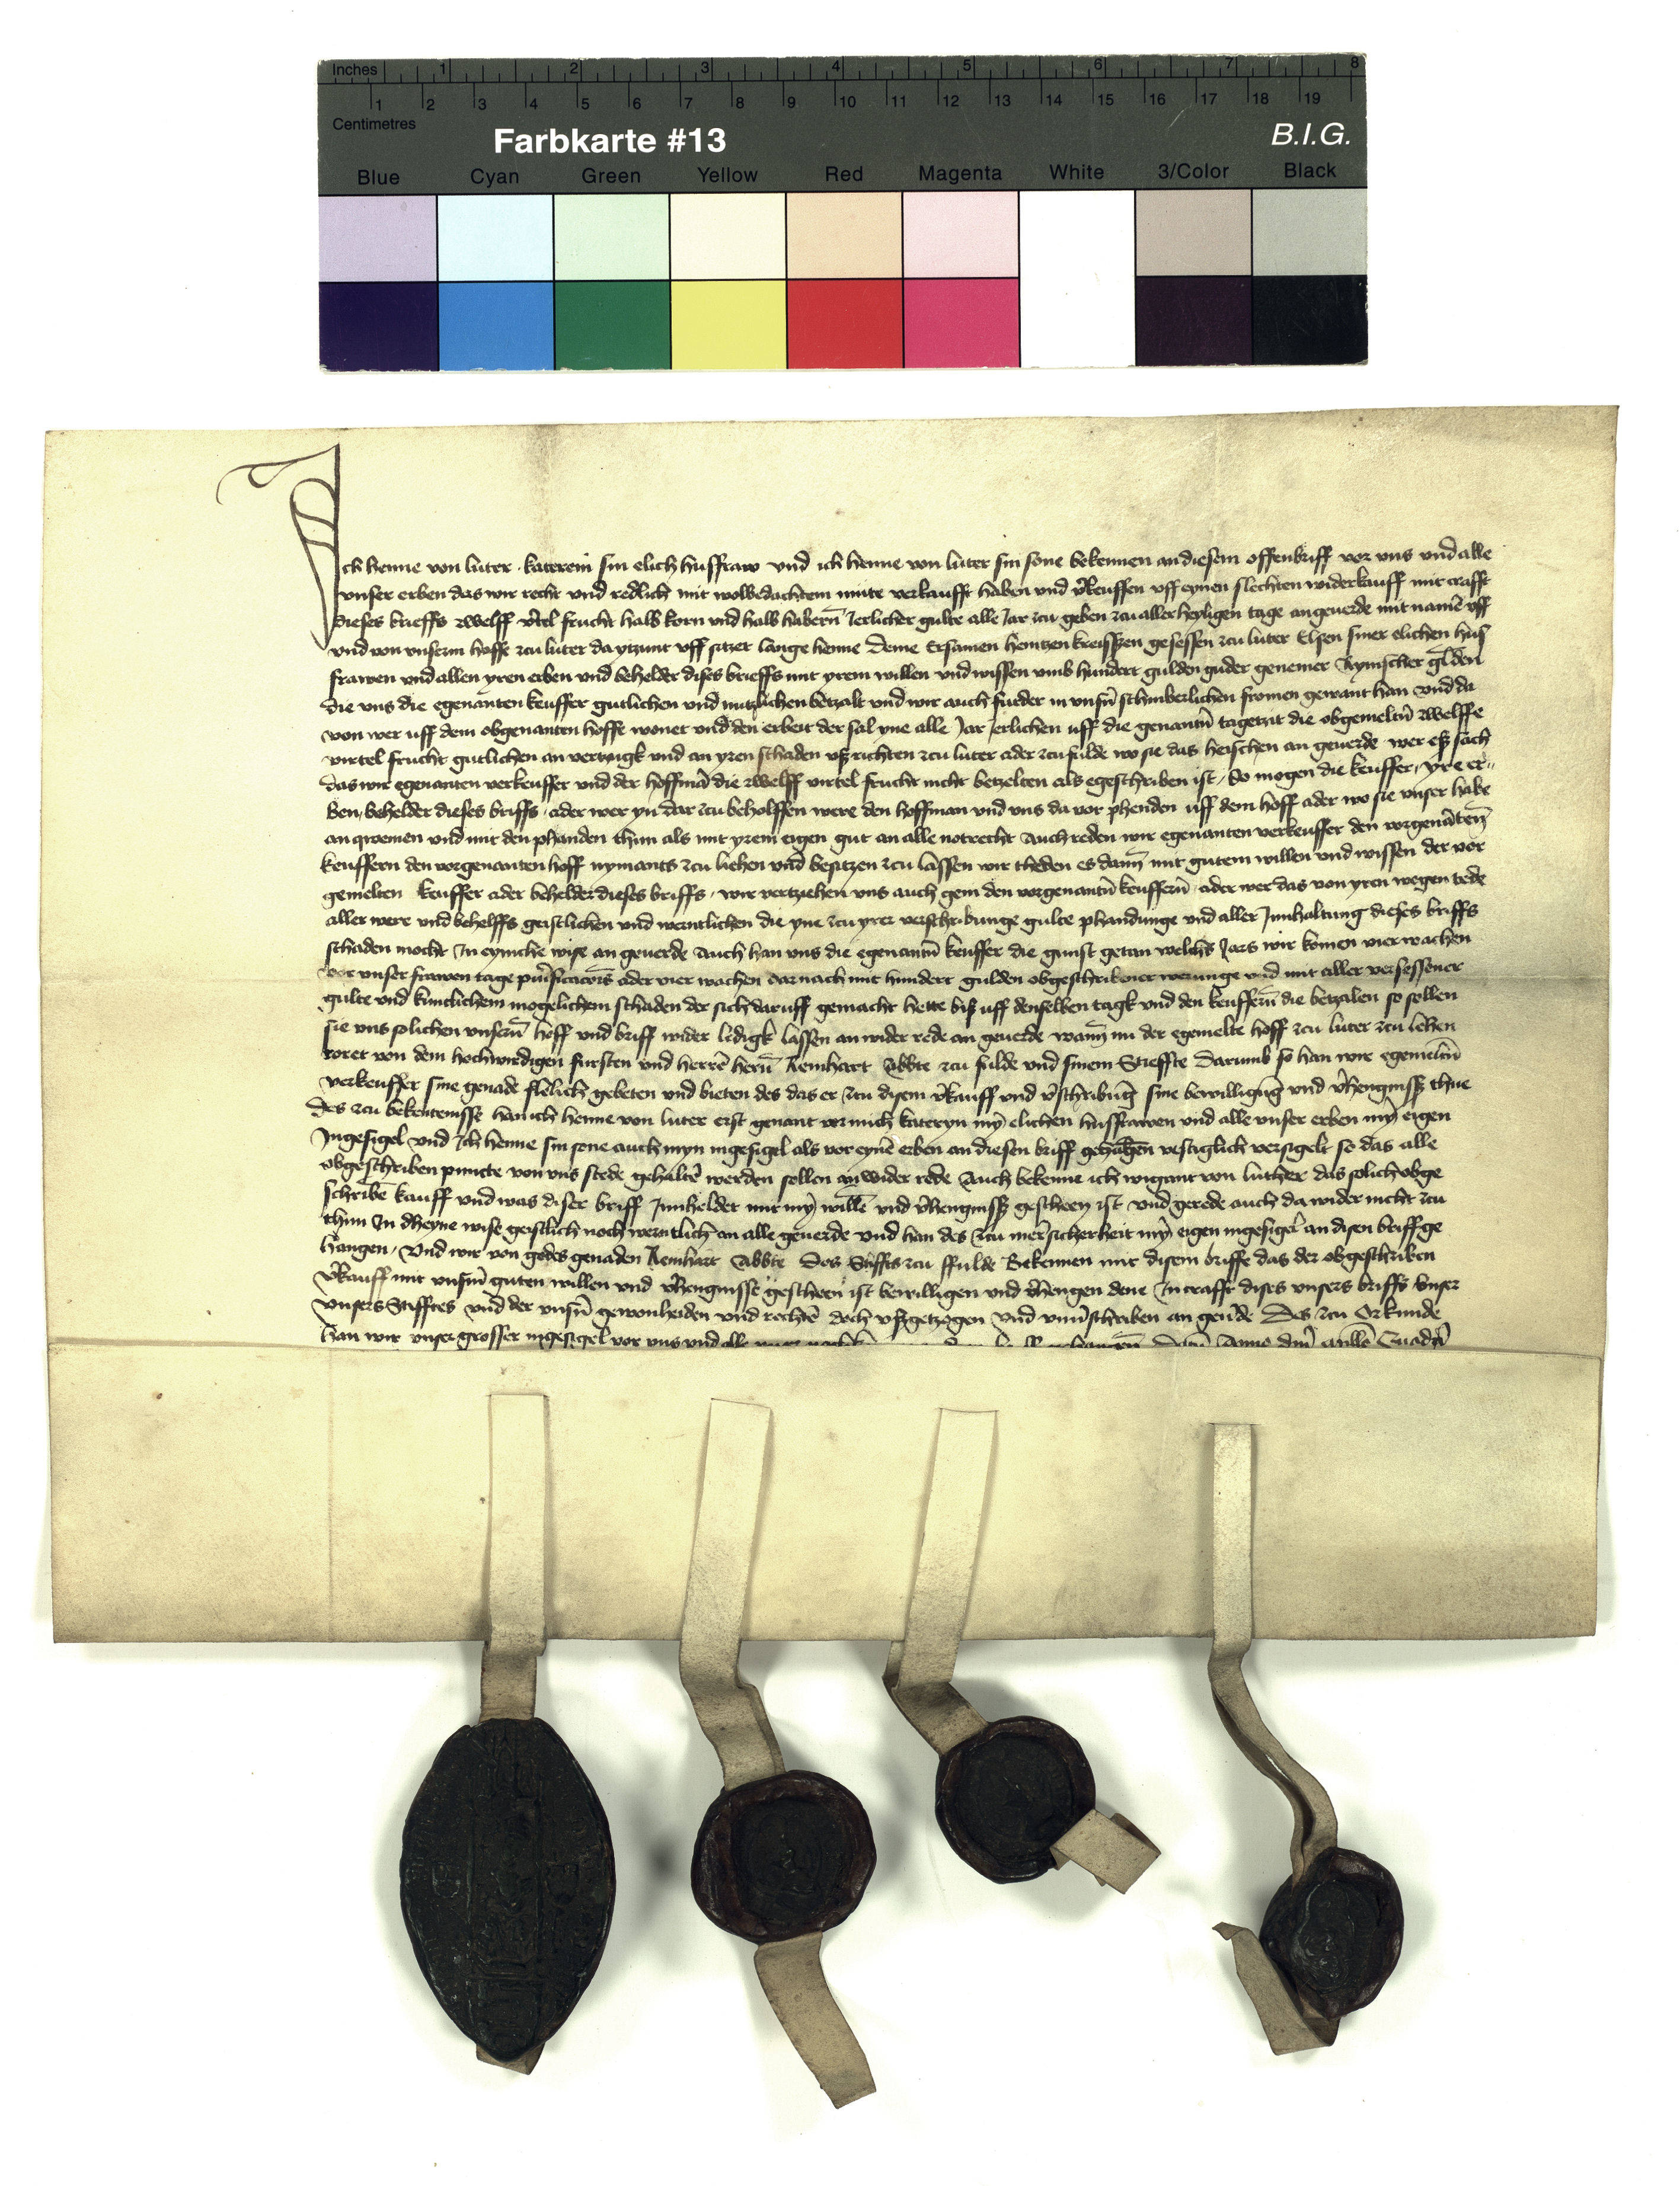 Inches 1 2 3 4 5 6 7 8
1 2 3 4 5 6 7 8 9 10 11 12 13 14 15 16 17 18 19
Centimetres
Farbkarte #13 B.I.G.
Blue Cyan Green Yellow Red Magenta White 3/Color Black
Ich henne von luter katerein sin elich husfraw und ich henne von luter sin sone bekennen an diesem offenbriff vor uns und alle
unser erben das wir recht und redlich mit wolbedachtem mute verkaufft haben und v̓keuffen uff eynen slechten widerkauff mit crafft
dieses brieffs zwelff v̓tel frucht halb korn und halb habern̄ Jerlicher gulte alle Jar zcu geben zcu aller heyligen tage an geuerde mit namē uff
und von unserm hoffe zcu luter da ytzunt uff sitzet lange henne deme Ersamen hentzen kreisszen gesessen zcu luter Elsen siner elichen hus
frawen und allen yren erben und behelder dises brieffs mit yrem willen und wissen umb hundert gulden guder genemer Rynischer gulden
die uns die egenanten keuffer gutlichen und nutzlichen betzalt und wir auch furder in unsn̄ schinberlichen fromen gewant han und da
von wer uff dem obgenanten hoffe wonet und den erbeit der sal yne alle Jar Jerlichen uff die genantn̄ tagetzit die obgemeltn̄ zwelffe
virtel frucht gutlichen an vertzugk und an yren schaden uszrichten zcu luter ader zcu fulde wo sie das heischen an geuerde wer esz sach
das wir egenanten verkeuffer und der hoffmā die zwelff virtel frucht nicht betzelten als egeschriben ist / So mogen die keuffer, yre er-
ben, behelder dieses briffs ader wer yn dar zcu beholffen were den hoffman und uns da vor phenden uff dem hoff ader wo sie unser habe
an qwemen und mit den phanden thun als mit yrem eigen gut an alle notrecht Auch reden wir egenanten verkeuffer den vorgenāten̄
keuffern den vorgenanten hoff nymants zcu lihen und besitzen zcu lassen wir theden es dann̄ mit gutem willen und wissen der vor
gemelten keuffer ader behelder dieses briffs wir vertzihen uns auch gein den vorgenantn̄ keuffern̄ ader wer das von yren wegen tede
aller were und behelffs geistlichen und werntlichen die yne zcu yrer verschribunge gulte phandunge und aller Innhaltung dieses briffs
schaden mocht In eyniche wise an geuerde Auch han uns die egenantn̄ keuffer die gunst getan welchs Jars wir komen vier wachen
vor unser frawen tage purificacōis ader vier wachen darnach mit hundert gulden obgeschribener werunge und mit aller versessener
gulte und kuntlichem mogelichem schaden der sich daruff gemacht hette bisz uff denselben tagk und den keuffern̄ die betzalen so sollen
sie uns solichen unsern̄ hoff und briff wider ledigk lassen an wider rede an geuerde wann̄ nu der egemelte hoff zcu luter zcu lehen
ruret von dem hochwirdigen fursten und herrē hern̄ Reinhart Abbte zcu fulde und sinem Stieffte darumb so han wir egemeltn̄
verkeuffer sine genade flelich gebeten und bieten des das er zcu disem v̓kauff und v̓schribūg sine bewilligūg und v̓hengnissz thue
des zcu bekentenissz han ich henne von luter erst genant vor mich kateryn my̅ elichen husfrawen und alle unser erben my̅ eigen
Ingesigel und Ich henne sin sone auch myn ingesigel als vor eynē erben an diesen briff gehāgen vestiglich versigelt so das alle
obgeschriben puncte von uns stede gehaltē werden sollen an wider rede Auch bekenne ich wigant von luther das solich obge
schribē kauff und was diser briff Innheldet mit my̅ willē und v̓hengnissz gescheen ist und gerede auch da wider nicht zcu
thun In dheyne wise geistlich noch werntlich an alle geuerde und han des zcu mer̓ sicherheit my̅ eigen ingesigel an disen briff ge
hangen, Und wir von godes genaden Reinhart Abbte des Stiffts zcu ffulde Bekennen mit disem briffe das der obgeschriben
v̓kauff mit unsm̄ guten willen und v̓hengnisse gescheen ist bewilligen und v̓hengen dene In crafft dises unsers briffs unser
unsers Stifftes und der unsn̄ gewonheiden und rechtē doch uszgetzogen und unv̓schriben an geu̓de Des zcu Orkunde
han wir unser grosser ingesigel vor uns und alle